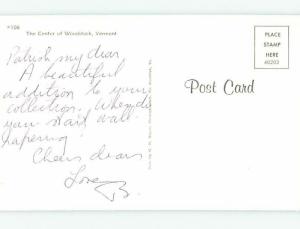 #106 The Center of Woodstock, Vermont
PLACE
STAMP
HERE
60203
Post Card
Patrish my dear
A beautiful
addition to your
collection. When do
you start wall-
papering?
Cheers dears
Love